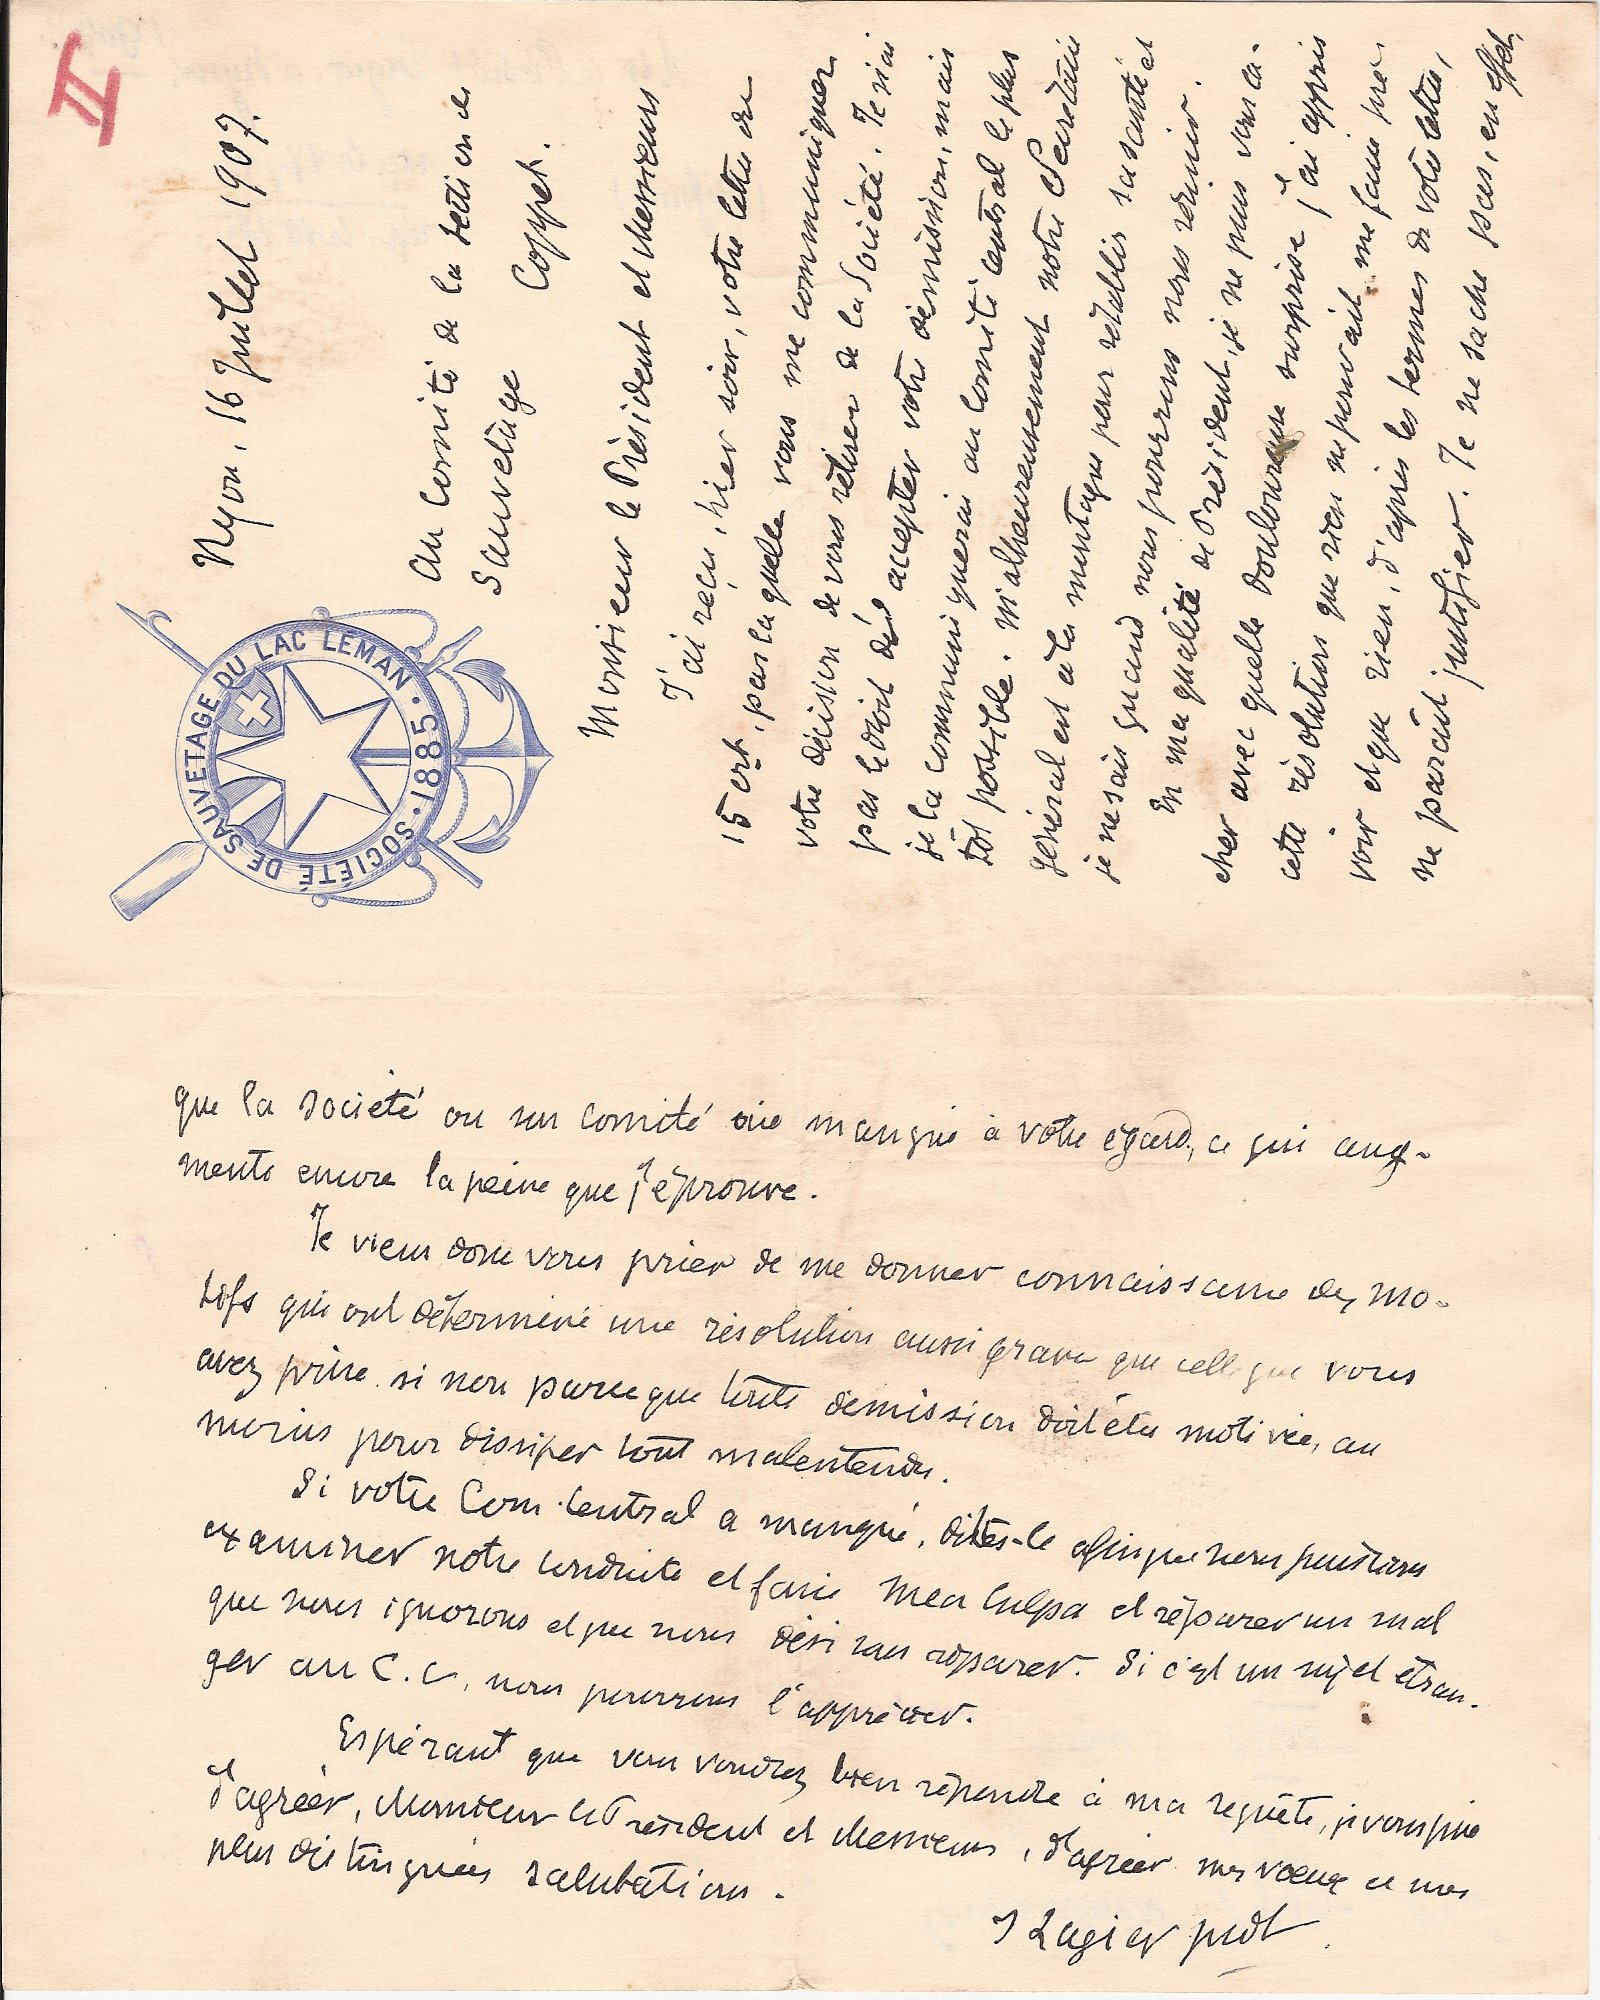 II
SOCIÉTÉ DE SAUVETAGE DU LAC LEMAN · 1885 ·
Nyon, 16 Juillet 1907.
Au Comité de la section de
Sauvetage Coppet.
Monsieur le Président et Messieurs
J'ai reçu, hier soir, votre lettre du
15 crt, par laquelle vous me communiquez
votre décision de vous retirer de la Société. Je n'ai
pas le droit d'accepter votre démission, mais
je la communiquerai au Comité central le plus
tôt possible. Malheureusement notre Secrétaire
général est à la montagne pour rétablir sa santé et
je ne sais quand nous pourrons nous réunir.
En ma qualité de Président, je ne puis vous ca-
cher avec quelle douloureuse surprise j'ai appris
cette résolution que rien ne pouvait me faire pré-
voir et que rien, d'après les termes de votre lettre,
ne paraît justifier. Je ne sache pas, en effet,
que la société ou son Comité aie manqué à votre égard, ce qui aug-
mente encore la peine que j'éprouve.
Je viens donc vous prier de me donner connaissance des mo-
tifs qui ont déterminé une résolution aussi grave que celle que vous
avez prise si non parce que toute démission doit être motivée, au
moins pour dissiper tout malentendu.
Si votre Com. Central a manqué, dites-le afin que nous puissions
examiner notre conduite et faire mea culpa et réparer un mal
que nous ignorons et que nous désirons réparer. Si c'est un sujet étran-
ger au C. C., nous pourrons l'apprécier.
Espérant que vous voudrez bien répondre à ma requête, je vous prie
d'agréer, Monsieur le Président et Messieurs, d'agréer mes vœux et mes
plus distinguées salutations.
J Lagier prdt.